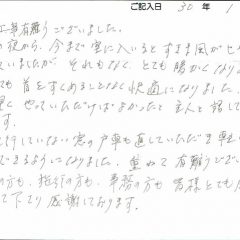 ご記入日 30 年 1
工事有難うございました。
の後から、今まで窓に入いるとすきま風がヒ
ていましたが、それもなく、とても暖かくなりま
ても首をすくめることなく快適になりました。
くやっていただけばよかったと主人と話して
す。
していない窓の戸車も直していただき
できるようになりました。重ねて有難うござい
の方も、事務の方も皆様とても
て下り感謝しております。